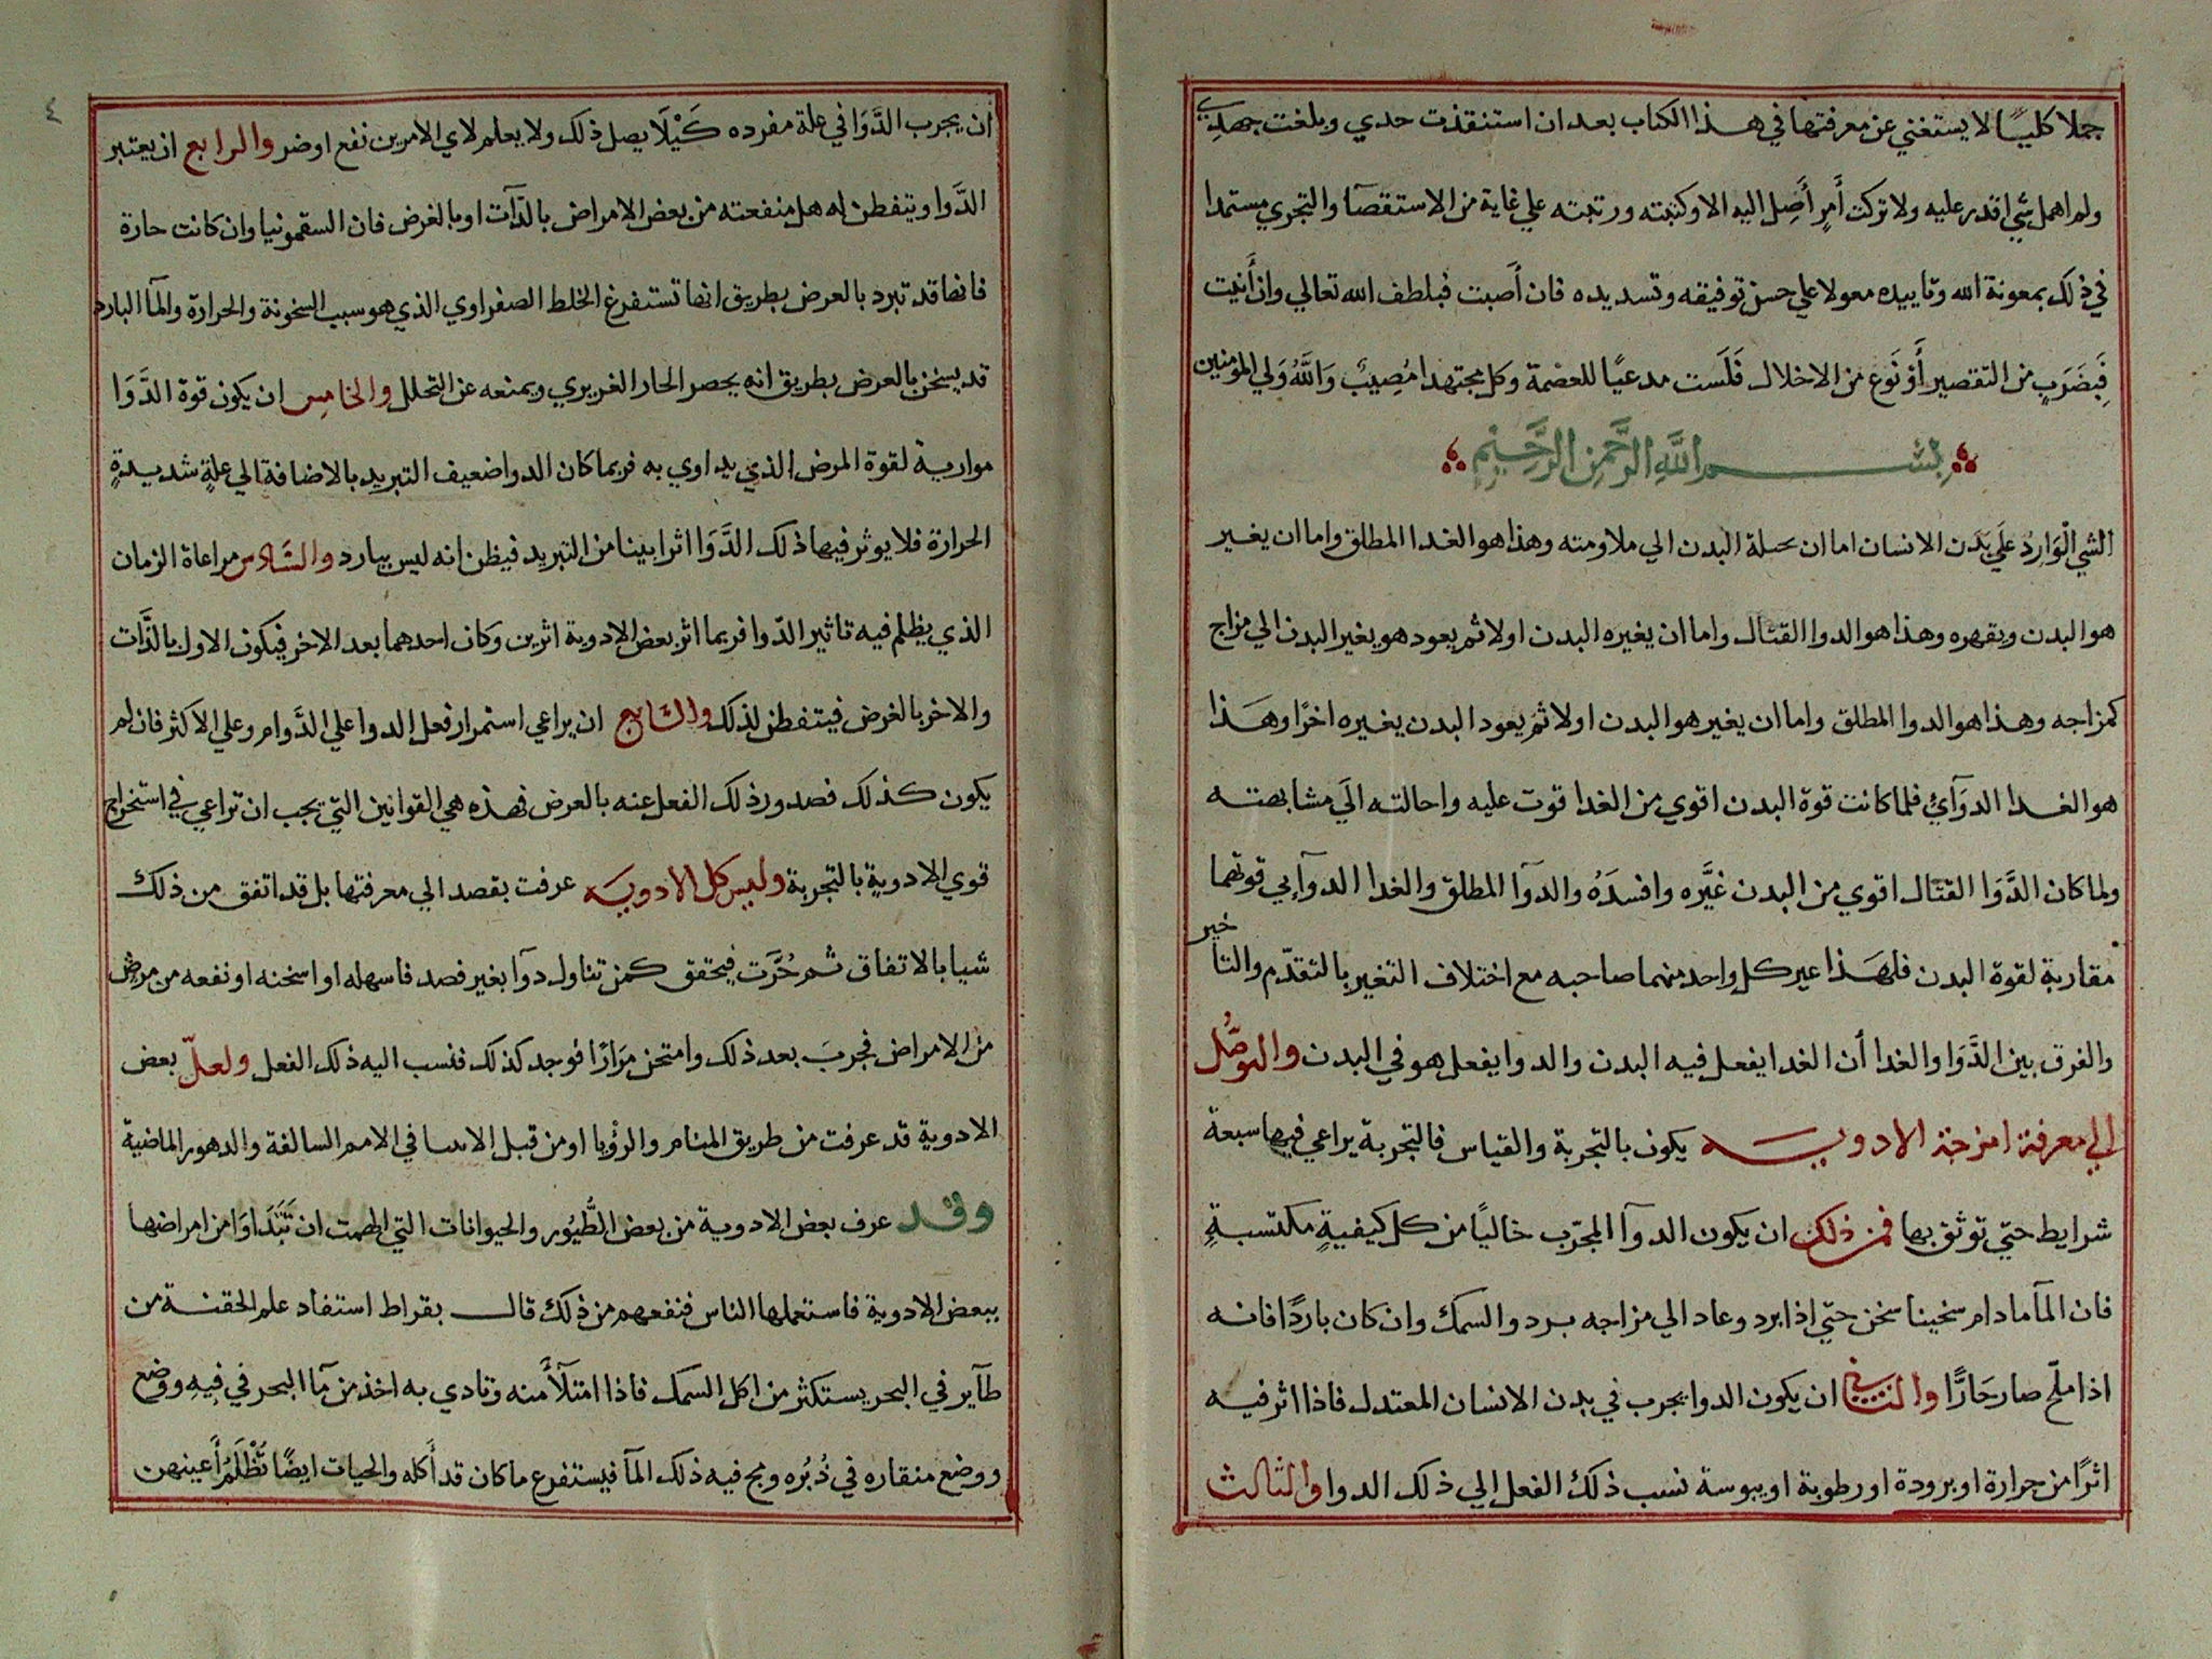 جملا كليًا لا يستغني عن معرفتها في هذا الكتاب بعد ان استنقذت حدي وبلغت جهدي
ولم اهمل شي اقدر عليه ولا تركت أمرٍ أَصِل اليه الا وكتبته ورتبته علي غاية من الاستقصآ والتجري مستمدا
في ذلك بمعونة الله وتاييده معولا علي حسن توفيقه وتسديده فان أَصبت فبلطف الله تعالي وان أَتيت
فَبِضَرَبٍ من التقصير أَوْ نَوع من الاخلال فَلَست مدعيًا للعضمة وكل مجتهدا مُصِيبٌ وَاللَّهُ وَلي المؤمنين
بِسْمِ اللَّهِ الرَّحْمنِ الرَّحِيمِ
الشي الْوَارِدُ علَي بَدَن الانسان اما ان البدن الي ملاومته وهذا هو الغدا المطلق واما ان يغير
هو البدن ويقهره وهذا هو الدوا القتال واما ان يغيره البدن اولا ثم يعود هو يغير البدن الي مزاج
كمزاجه وهذا هو الدوا المطلق واما ان يغير هو البدن اولا ثم يعود البدن يغيره اخرًا وهَذا
هو الغدا الدوَآئي فلما كانت قوة البدن اقوي من الغدا قوت عليه واحالته اليَ مشابهته
ولما كان الدَّوَا القتال اقوي من البدن غيَّره وافسدَهُ والدوآ المطلق والغدا الدوآيي قوتهما
مقاربة لقوة البدن فلهَذا عير كل واحد منهما صاحبه مع اختلاف التغير بالتقدّم والتاخير
والفرق بين الدَّوَا والغدا أن الغدا يفعل فيه البدن والدوا يفعل هو في البدن والتوصُّل
الي معرفة امزجة الادويه يكون بالتجربة والقياس فالتجربة يراعي فيها سبعة
شرايط حتي توثق بها فمن ذلك ان يكون الدوآ المجرّب خاليًا من كل كيفيةٍ مكتسبةٍ
فان المآ مادام سخينا سخن حتي اذا برد وعاد الي مزاجه برد والسمك وان كان باردًا فانه
اذا ملّح صار حَارًّا والثاني ان يكون الدوا يجرب في بدن الانسان المعتدل فاذا اثر فيه
اثرًا من حرارة او برودة او رطوبة او يبوسة نسب ذلك الفعل الي ذلك الدوا والثالث
٤
ان يجرب الدَّوَا في علة مفرده كَيْلَا يصل ذلك ولا يعلم لاي الامرين نفع او ضر والرابع ان يعتبر
الدَّوا ويتفطن له هل منفعته من بعض الامراض بالدَّآت او بالغرض فان السقمونيا وان كانت حارة
فانها قد تبرد بالعرض بطريق انها تستفرغ الخلط الصفراوي الذي هو سبب السخونة والحرارة والمآ البارد
قد يسخن بالعرض بطريق انه يحصر الحار الغريري ويمنعه عن التحلل والخامِس ان يكون قوة الدَّوَا
موارية لقوة المرض الذي يداوي به فربما كان الدوا ضعيف التبريد بالاضافة الي علةٍ شديدةٍ
الحرارة فلا يوثر فيها ذلك الدَّوَا اثرا بينا من التبريد فيظن انه ليس ببارد والسَّادس مراعاة الزمان
الذي يظلم فيه تاثير الدّوا فربما اثر بعض الادوية اثرين وكان احدهما بعد الاخر فيكون الاول بالذَّات
والاخر بالغرض فيتفطن لذلك والسَّابع ان يراعي استمرار فعل الدوا علي الدَّوام وعلي الاكثر فان لم
يكون كذلك فصدور ذلك الفعل عنه بالعرض فهذه هي القوانين التي يجب ان تراعي في استخراج
قوي الادويةٍ بالتجربة وليس كل الادويه عرفت بقصد الي معرفتها بل قد اتفق من ذلك
شيا بالاتفاق ثم فيحقق كمن تناول دوآ بغير فصد فاسهله او اسخنه او نفعه من مرض
من الامراض فجربَ بعد ذلك وامتحن مرَارًا فوجد كذلك فنسب اليه ذلك الفعل ولعلّ بعض
الادوية قد عرفت من طريق المنام والرؤيا او من قبل الانبيا في الامم السالفة والدهور الماضية
وقد عرف بعض الادوية من بعض الطُّيُور والحيوانات التي الهمت ان تَتَدَاوَا من امراضها
ببعض الادوية فاستعملها الناس فنفعهم من ذلك قال بقراط استفاد علم الحقنة من
طآير في البحر يستكثر من اكل السمك فاذا امتلآً منه وتادي به اخذ من مآ البحر في فِيهِ ووضع
ووضع منقاره في دُبُره ومج فيه ذلك المآ فيستفرع ما كان قد أَكله والحيات ايضًا تُظْلَمُ أَعينهن